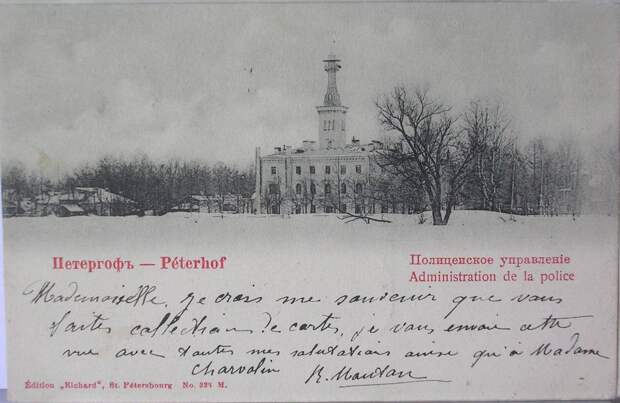 Петергофъ — Péterhof
Полицейское управленіе
Administration de la police
Mademoiselle, je crois me souvenir que vous
faites collection de cartes, je vous envoie cette
vue avec toutes mes salutations ainsi qu'à Madame
Charvolin
Édition „Richard“, St. Pétersbourg No. 324 M.